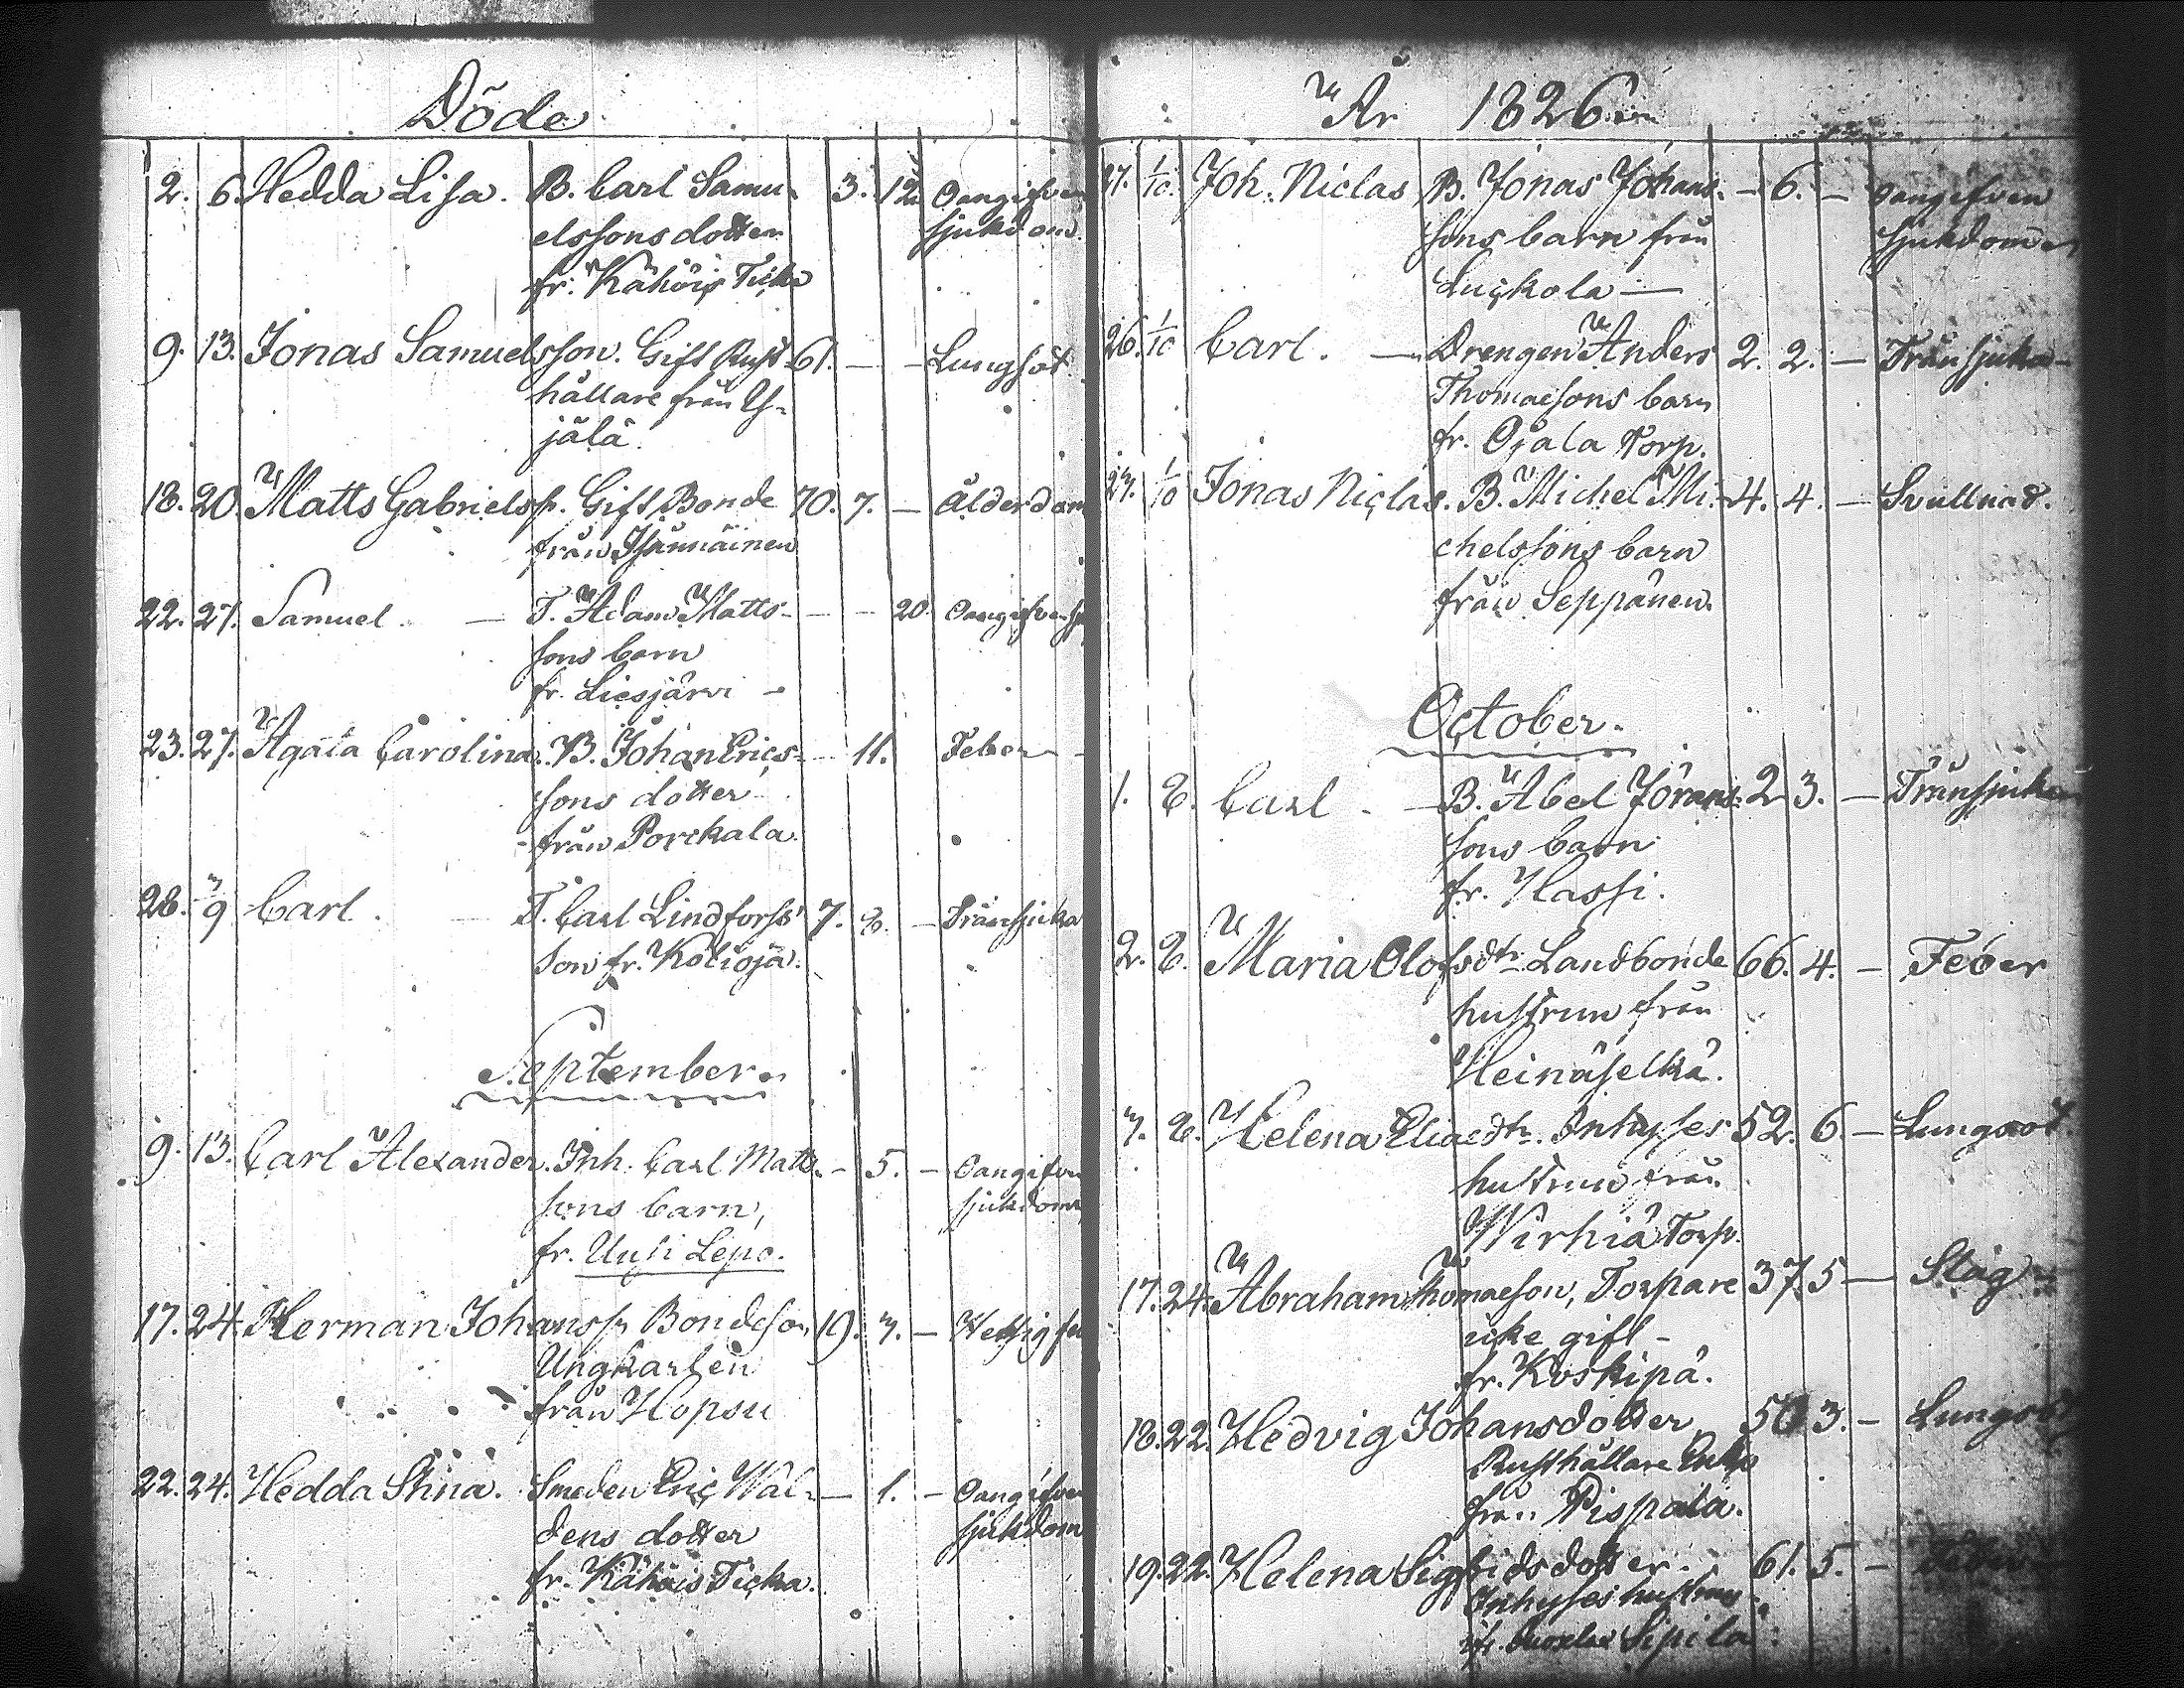 Döde
2. 6. Hedda Lisa. B. Carl Samu- 3. 12. Oangifven
elssons dotter sjukdom.
fr. Kähöis Ticka
9. 13. Jonas Samuelsson. Gift Rust- 61. — — Lungsot
hållare från Y-
jälä.
18. 20. Matts Gabrielss. Gift Bonde 70. 7. — Ålderdom
från
22. 27. Samuel. — T. Adam Matts- — — 20. Oangifven
sons barn
fr. Liesjärvi —
23. 27. Agata Carolina. B. Johan Erics- — 11. Feber —
sons dotter
från Porckala.
28. 3/9 Carl. — T. Carl Lindforss' 7. 8. — Tränsjuka
son fr. Koliojä.
September.
9. 13. Carl Alexander. Inh. Carl Matts- — 5. — Oangifven
sons barn, sjukdom
fr. Uusi Lepo.
17. 24. Herman Johanss. Bondeson, 19. 7. —
Ungkarlen
från Hopsu
22. 24. Hedda Stina. Smeden Eric Wal- — 1. — Oangifven
dens dotter sjukdom
fr. Kähöis Ticka.
År 1826
27. 1/10. Joh. Niclas B. Jonas Johans- — 6. — oangifven
sons barn från sjukdom
Luckola —
26. 1/10 Carl. — Drengen Anders 2. 2. — Tränsjuka —
Thomaesons barn
fr. Ojala Torp.
27. 1/10 Jonas Niclas. B. Michel Mi- 4. 4. — Svullnad.
chelssons barn
från Seppänen.
October.
1. 8. Carl. — B. Abel Jörans- 2 3. — Tränsjuka
sons barn
fr. Hassi.
2. 8. Maria Olofsdtr Landbonde 66. 4. — Feber
hustrun från
Heinäselkä.
7. 8. Helena Eliaedtr. Inhyses 52. 6. — Lungsot
hustrun från
Wirhiä Torp.
17. 24. Abraham Thomaeson, Torpare 37. 5 — Slag
icke gift —
fr. Koskipä.
18. 22. Hedvig Johansdotter, 50 3. — Lungsot
Rusthållare Enka
från Pispala.
19. 22. Helena Sigfridsdotter. 61. 5. —
Inhyses hustrun
fr. Sipila